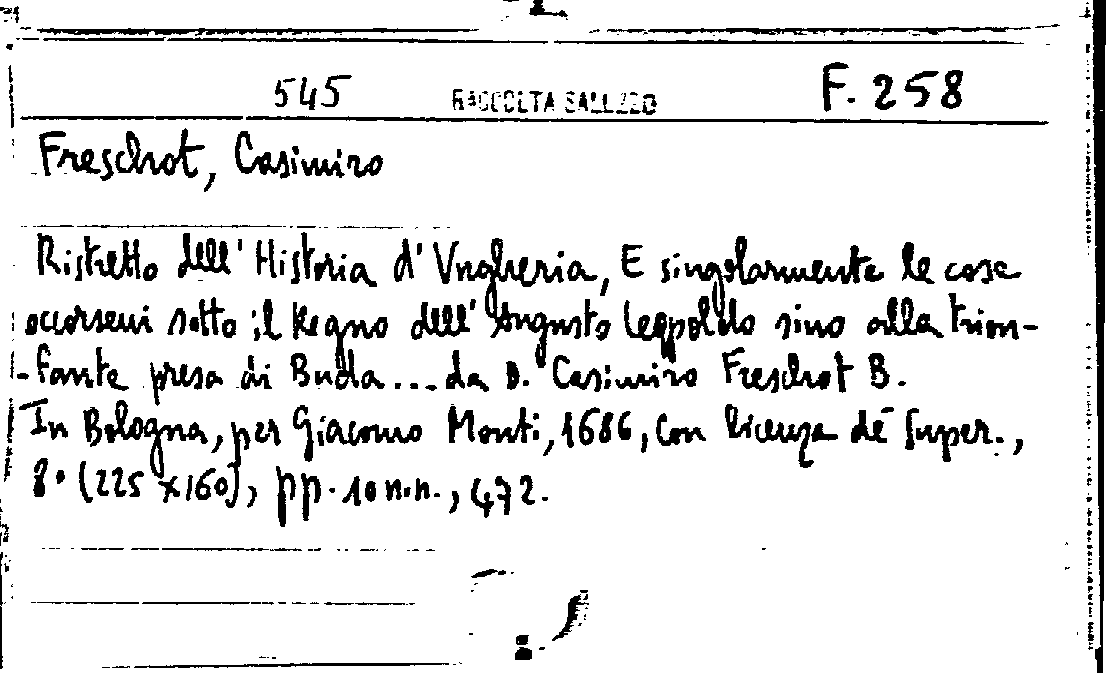 545 RACCOLTA F. 258
Freschot, Casimiro
Ristretto dell' Historia d'Vngheria, E singolarmente le cose
occorseui sotto il Regno dell' Augusto Leopoldo sino alla trion-
-fante presa di Buda... da D. Casimiro Freschot B.
In Bologna, per Giacomo Monti, 1686, Con licenza de Super.,
8° (225 x 160), pp. 10 n.n., 472.